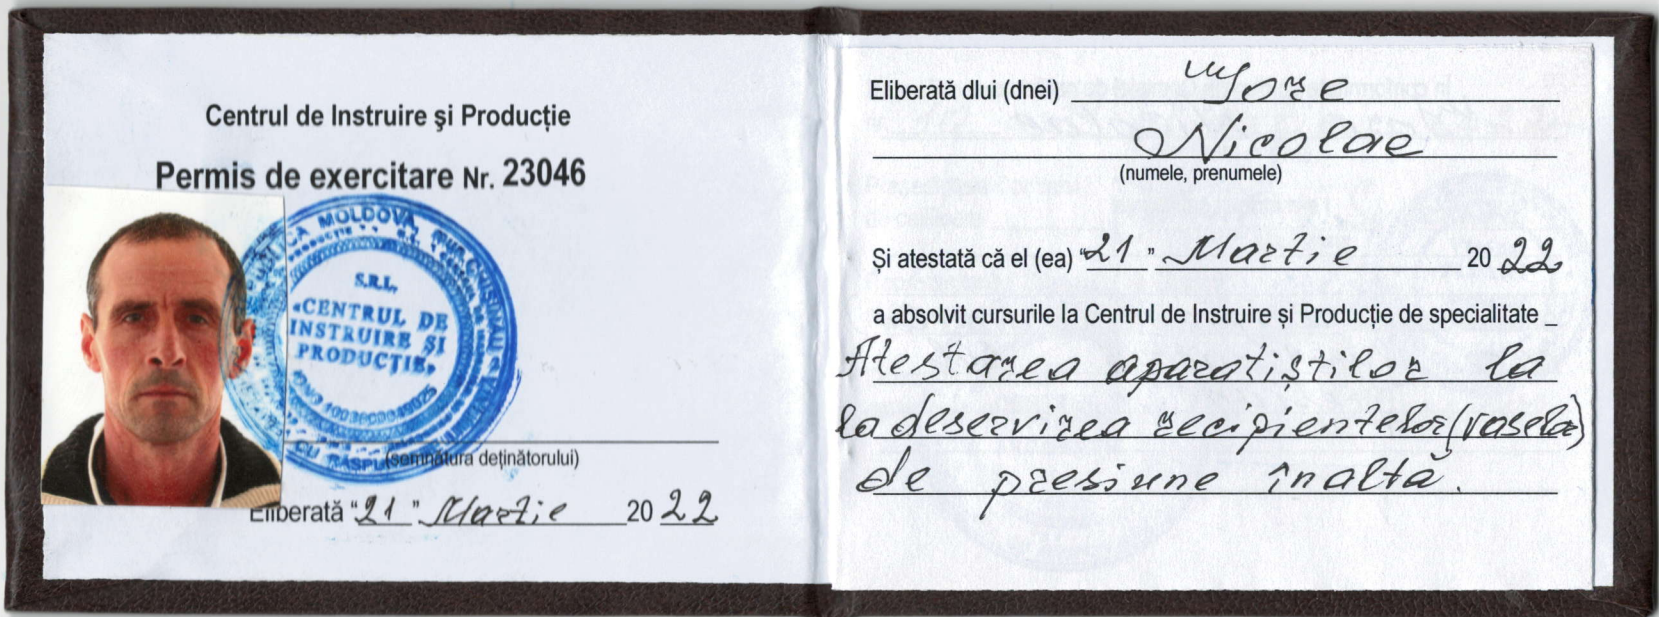 Centrul de Instruire şi Producție
Permis de exercitare Nr. 23046
MOLDOVA
S.R.L.
«CENTRUL DE
INSTRUIRE ŞI
PRODUCŢIE»
(semnătura deținătorului)
Eliberată “21” Martie 2022
Eliberată dlui (dnei)
Nicolae
(numele, prenumele)
Și atestată că el (ea) “21” Martie 2022
a absolvit cursurile la Centrul de Instruire și Producție de specialitate _
Atestarea aparatiștilor la
la deservirea recipientelor (vaselor)
de presiune înaltă.